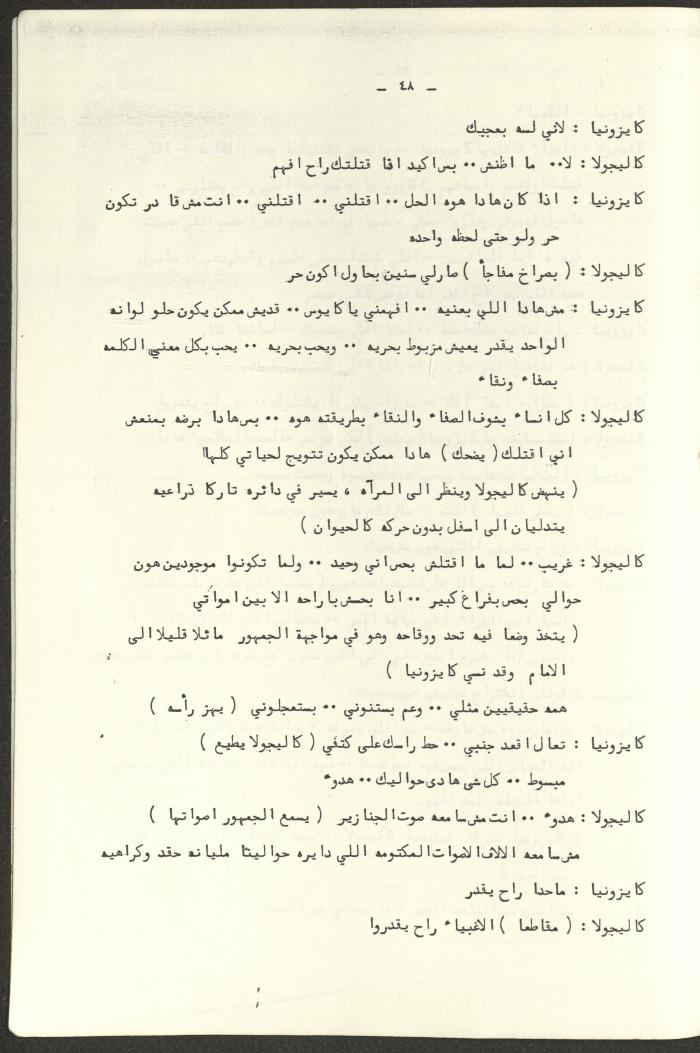 - ٤٨ -
كايزونيا : لاني لسه بعجبك
كاليجولا : لا٠٠ ما اظنش ٠٠ بس اكيد اذا قتلتك راح افهم
كايزونيا : اذا كان هادا هوه الحل ٠٠ اقتلني ٠٠ اقتلني ٠٠ انت مش قادر تكون
حر ولو حتى لحظه واحده
كاليجولا : ( بصراخ مفاجأ ) صارلي سنين بحاول اكون حر
كايزونيا : مش هادا اللي بعنيه ٠٠ افهمني يا كايوس ٠٠ قديش ممكن يكون حلو لو انه
الواحد يقدر يعيش مزبوط بحريه ٠٠ ويحب بحريه ٠٠ يحب بكل معنى الكلمه
بصفاء ونقاء
كاليجولا : كل انساء بشوف الصفاء والنقاء بطريقته هوه ٠٠ بس هادا برضه بمنعش
اني اقتلك ( يضحك ) هادا ممكن يكون تتويج لحياتي كلها
( ينهض كاليجولا وينظر الى المرآه ، يسير في دائره تاركا ذراعيه
يتدليان الى اسفل بدون حركه كالحيوان )
كاليجولا : غريب ٠٠ لما ما اقتلش بحس اني وحيد ٠٠ ولما تكونوا موجودين هون
حوالي بحس بفراغ كبير ٠٠ انا بحسش باراحه الا بين امواتي
( يتخذ وضعا فيه تحد ووقاحه وهو في مواجهة الجمهور مائلا قليلا الى
الامام وقد نسي كايزونيا )
همه حقيقيين مثلي ٠٠ وعم بستنوني ٠٠ بستعجلوني ( يهز رأسه )
كايزونيا : تعال اقعد جنبي ٠٠ حط راسك على كتفي ( كاليجولا يطيع )
مبسوط ٠٠ كل شي هادى حواليك ٠٠ هدوء
كاليجولا : هدوء ٠٠ انت مش سامعه صوت الجنازير ( يسمع الجمهور اصواتها )
مش سامعه الالاف الاصوات المكتومه اللي دايره حوالينا مليانه حقد وكراهيه
كايزونيا : ماحدا راح يقدر
كاليجولا : ( مقاطعا ) الاغبياء راح يقدروا